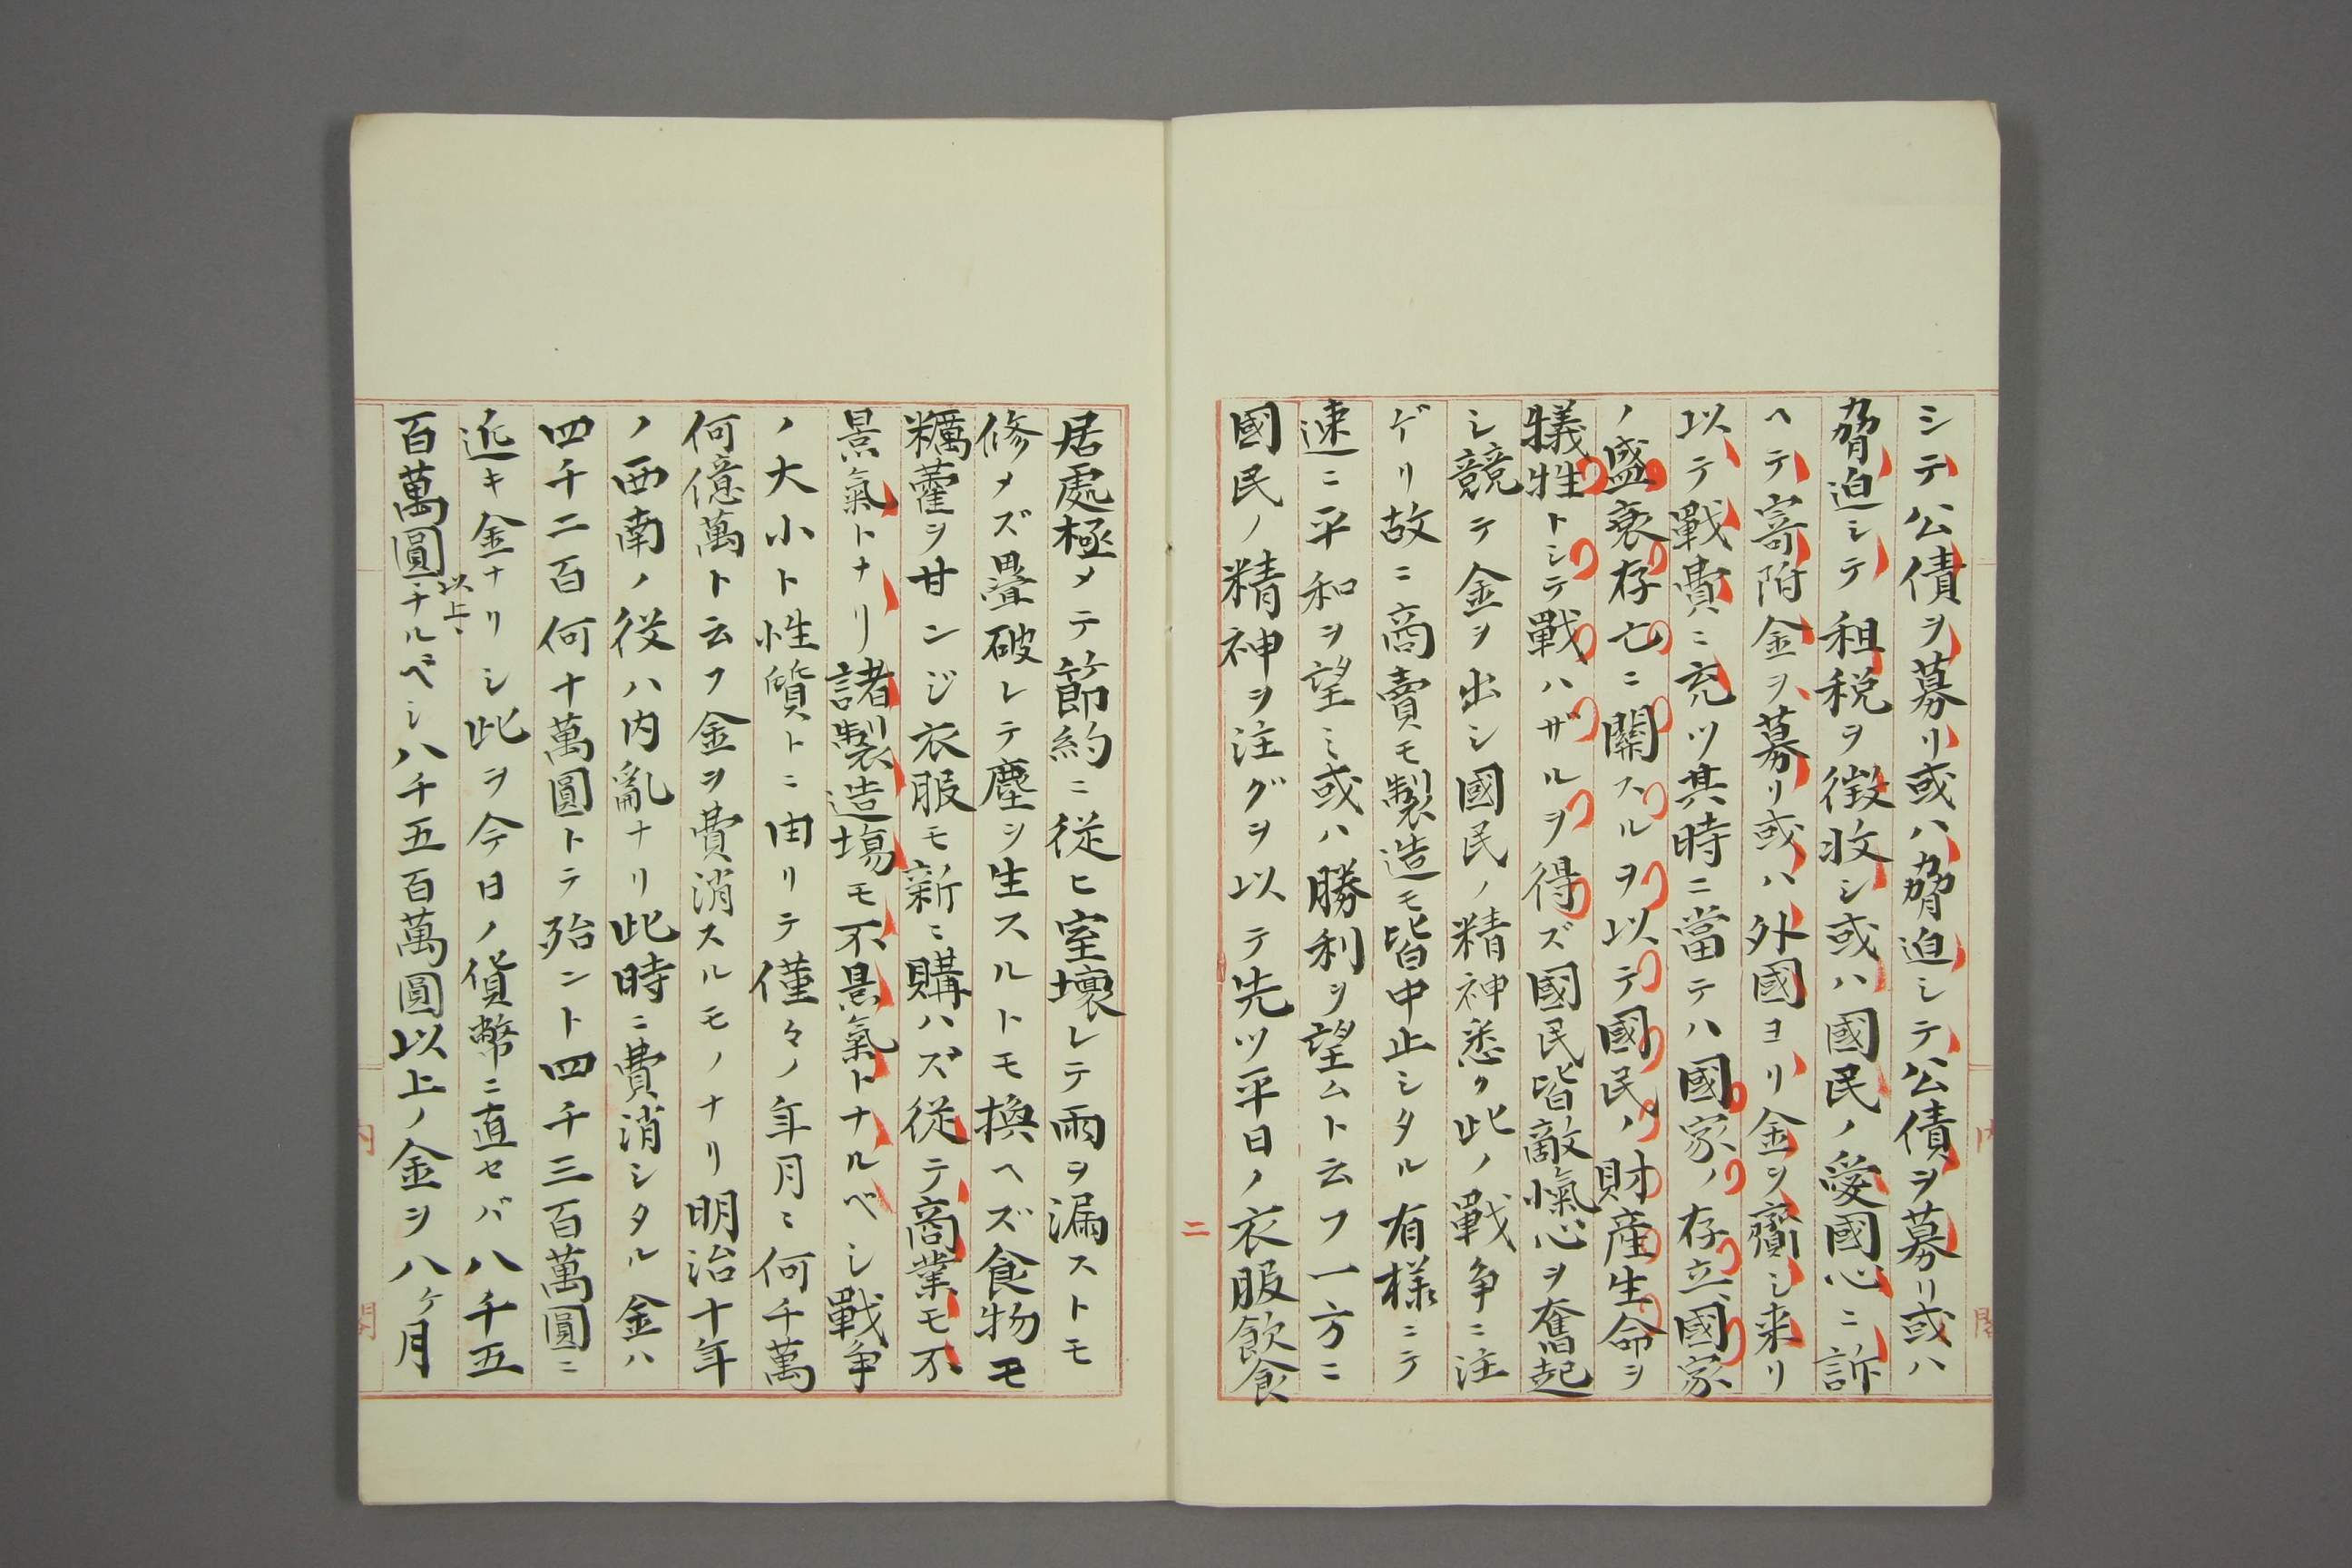 シテ公債ヲ募リ或ハ脅迫シテ公債ヲ募リ或ハ
脅迫シテ租税ヲ徴收シ或ハ國民ノ愛國心ニ訴
ヘテ寄附金ヲ募リ或ハ外國ヨリ金ヲ齎シ来リ
以テ戰費ニ充ツ其時ニ當テハ國家ノ存立國家
ノ盛衰存亡ニ關スルヲ以テ國民ノ財產生命ヲ
犠牲トシテ戰ハザルヲ得ズ國民皆敵愾心ヲ奮起
シ競テ金ヲ出シ國民ノ精神悉ク此ノ戰争ニ注
ゲリ故ニ商賣モ製造モ皆中止シタル有様ニテ
速ニ平和ヲ望ミ或ハ勝利ヲ望ムト云フ一方ニ
國民ノ精神ヲ注グヲ以テ先ツ平日ノ衣服飲食
二
居處極メテ節約ニ従ヒ室壞レテ雨ヲ漏ストモ
修メズ疊破レテ塵ヲ生スルトモ換ヘズ食物モ
糲藿ヲ甘ンジ衣服モ新ニ購ハズ従テ商業モ不
景氣トナリ諸製造塲モ不景氣トナルベシ戰争
ノ大小ト性質トニ由リテ僅々ノ年月ニ何千萬
何億萬ト云フ金ヲ費消スルモノナリ明治十年
ノ西南ノ役ハ内亂ナリ此時ニ費消シタル金ハ
四千二百何十萬圓トテ殆ント四千三百萬圓ニ
近キ金ナリシ此ヲ今日ノ貨幣ニ直セバ八千五
百萬圓以上ナルベシ八千五百萬圓以上ノ金ヲ八ヶ月
内閣